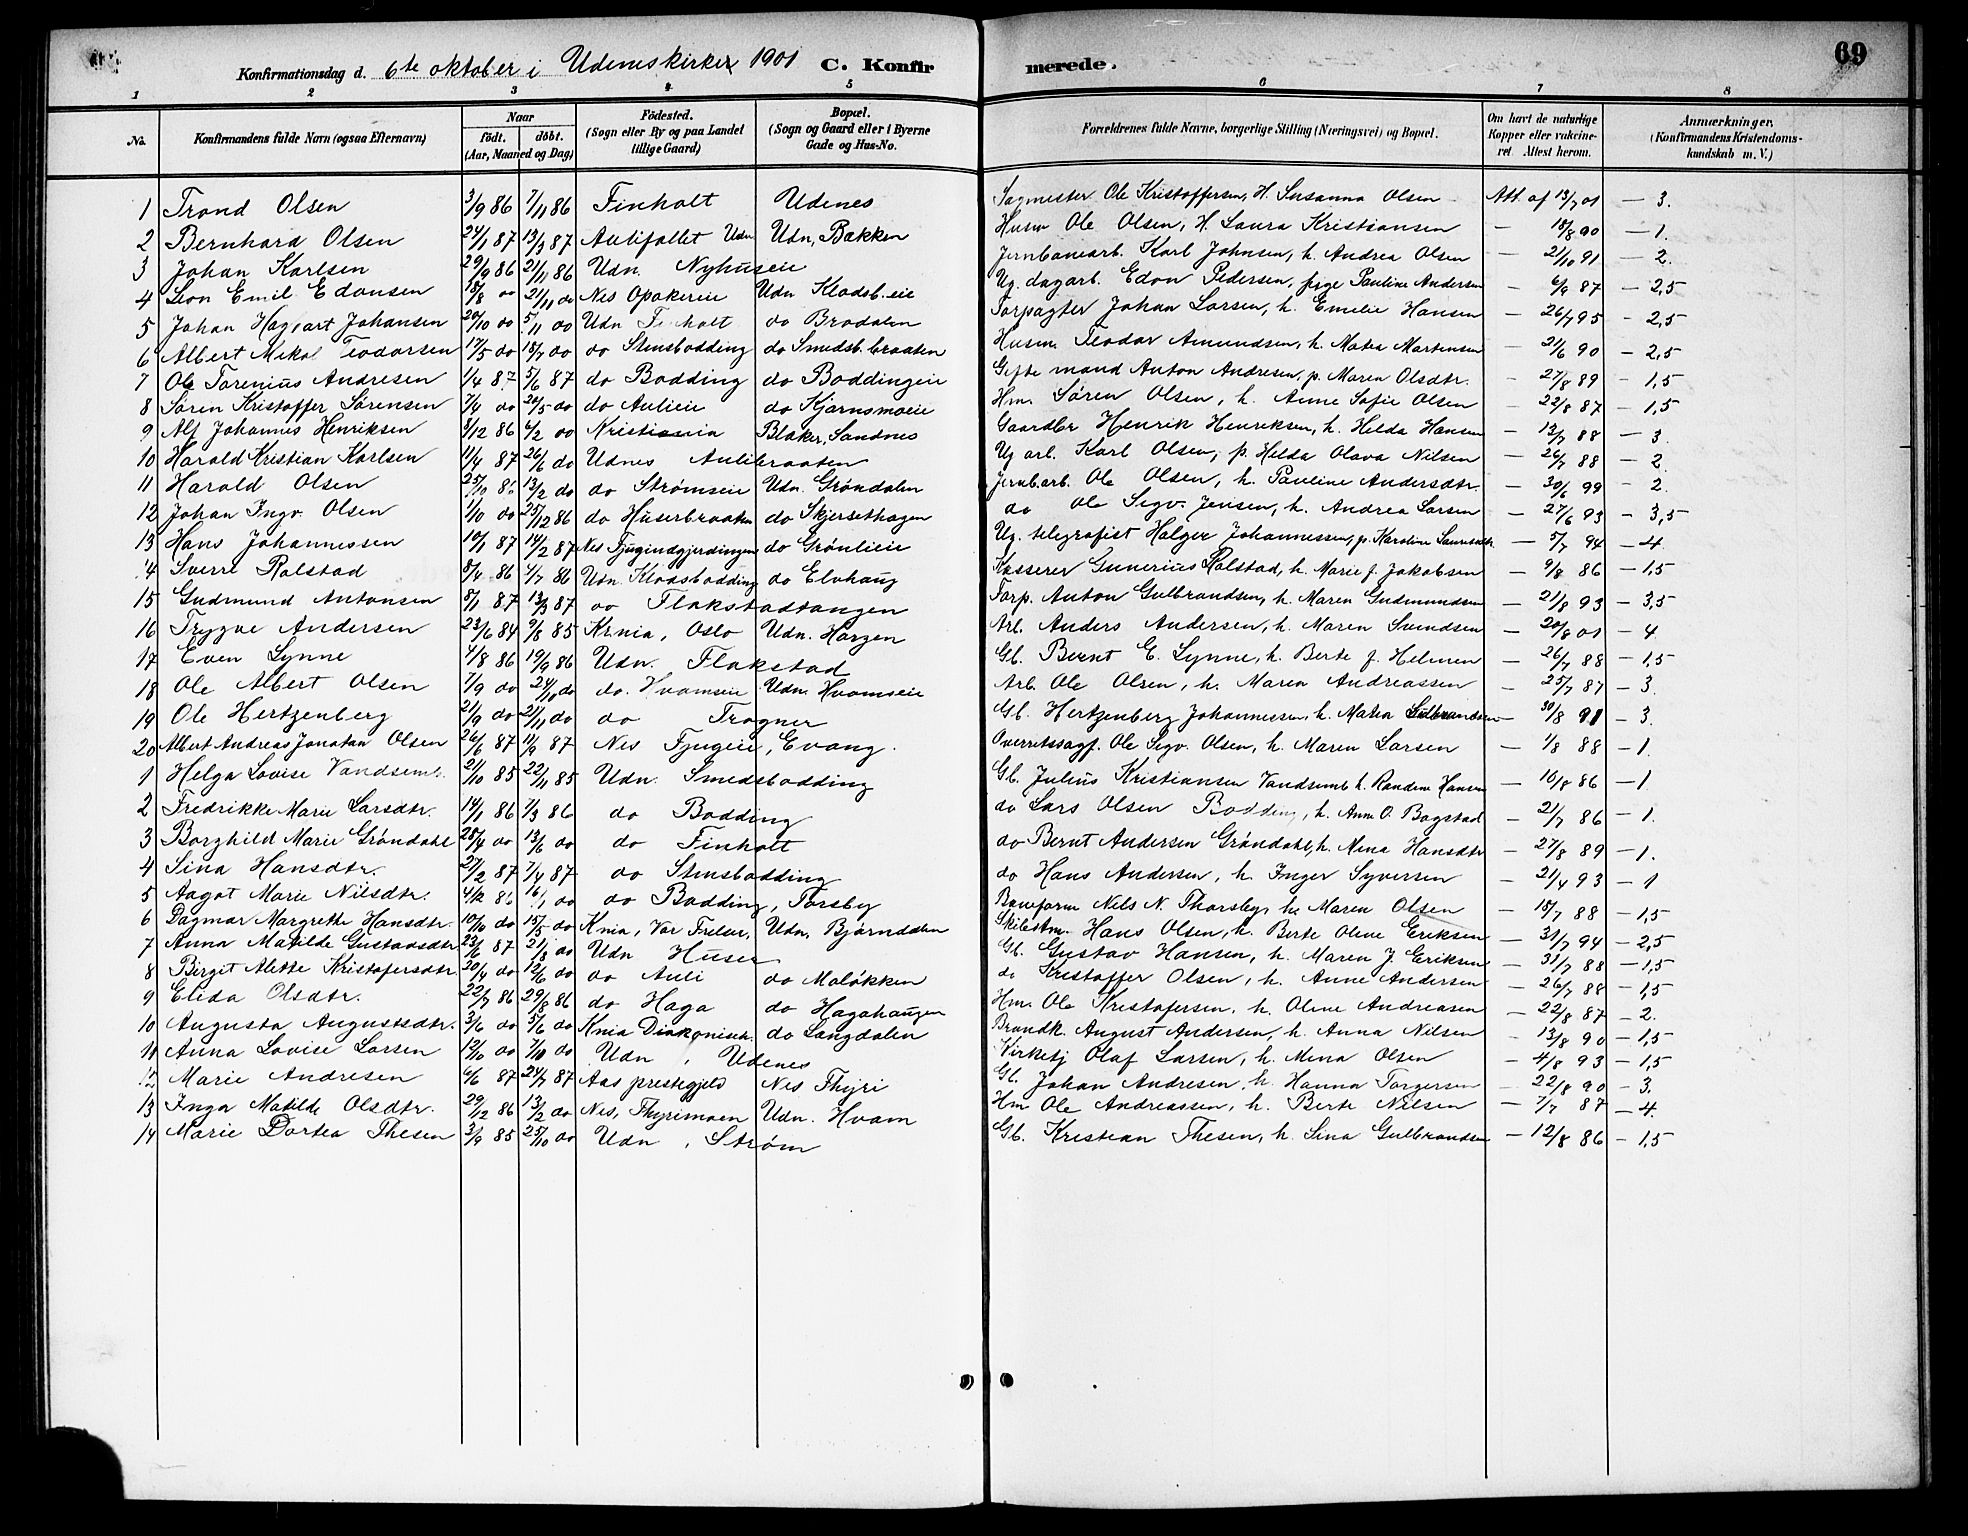 Konfirmationsdag d. 6te oktober i Udenes kirke 1901 C. Konfirmerede. 69
1 2 3 4 5 6 7 8
No. Konfirmandens fulde Navn (ogsaa Efternavn) Naar født. døbt. (Aar, Maaned og Dag) Fødested. (Sogn eller By og paa Landet tillige Gaard) Bopæl. (Sogn og Gaard eller i Byerne Gade og Hus-No. Forældrenes fulde Navne, borgerlige Stilling (Næringsvei) og Bopæl. Om havt de naturlige Kopper eller vakcineret. Attest herom. Anmærkninger, (Konfirmandens Kristendomskundskab m. V.)
1 Trond Olsen 3/9 86 7/11 86 Finholt Udenes Sagmester Ole Kristoffersen, H. Susanna Olsen Att. af 13/7 01 — 3.
2 Bernhard Olsen 24/1 87 13/3 87 Aulifallet Udn Udn, Bakken Husm Ole Olsen, H. Laura Kristiansen — 18/8 90 — 1.
3 Johan Karlsen 29/9 86 21/11 86 Udn. Nyhuseie Jernbanearb. Karl Johnsen, h. Andrea Olsen — 21/10 91 — 2.
4 Leon Emil Edonsen 18/8 do 21/11 do Nes Opakereie Udn Klodsb.eie Ug. dagarb. Edon Pedersen, pige Pauline Andersen — 6/9 87 — 2,5
5 Johan Hagbart Johansen 20/10 do 5/11 do Udn Finholt do Bradalen Torpagter Johan Larsen, h. Emelie Hansen — 26/7 95 — 2,5
6 Albert Mikal Teodorsen 17/5 do 18/7 do do Stensbodding do Smedsb.braaten Husm. Teodor Amundsen, h. Matea Martensen — 21/6 90 — 2,5
7 Ole Torenius Andresen 1/4 87 5/6 87 do Bodding do Boddingeie Gifte mand Anton Andresen, p. Maren Olsdtr. — 27/8 89 — 1,5
8 Søren Kristoffer Sørensen 7/4 do 20/5 do do Aulieie do Kjærnsmoeie Hm. Søren Olsen, h. Anne Sofie Olsen — 22/8 87 — 1,5
9 Alf Johannes Henriksen 3/12 86 6/2 do Kristiania Blaker, Sandnes Gaardbr Henrik Henriksen, h. Helda Hansen — 13/7 88 — 3.
10 Harald Kristian Karlsen 11/4 87 26/6 do Udnes Aulibraaten Ug arb. Karl Olsen, p. Helda Olava Nilsen — 26/7 88 — 2.
11 Harald Olsen 25/10 86 13/2 do do Strømseie Udn. Grøndalen Jernb.arb. Ole Olsen, h. Pauline Andersdtr. — 30/6 99 — 2.
12 Johan Ingv. Olsen 1/10 do 25/12 86 do Huserbraaten do Skjersethagen do Ole Segv. Jensen, h. Andrea Larsen — 27/6 93 — 3,5
13 Hans Johannessen 10/1 87 14/2 87 Nes Fjugindgjerdingen do Grønlieie Ug. telegrafist Holger Johannessen, p. Karoline Lauritsdtr. — 5/7 94 — 4.
14 Sverre Ralstad 8/4 86 4/7 86 Udn. Klodsbodding do Elvhaug Kasserer Gunerius Ralstad, h. Marie f. Jakobsen — 9/8 86 — 1,5
15 Gudmund Antonsen 8/1 87 13/3 87 do Flakstadtangen Torp. Anton Gulbrandsen, h. Maren Gudmundsen — 21/8 93 — 3,5
16 Trygve Andersen 23/6 84 9/8 85 Kr.nia, Oslo Udn. Horgen Arb. Anders Andersen, h. Maren Svendsen — 20/8 01 — 4
17 Even Lynne 4/8 86 19/9 86 Udn. Flakstad Gb. Bernt E. Lynne, h. Berte f. Helmen — 26/7 88 — 1,5
18 Ole Albert Olsen 7/9 do 24/10 do do. Hvamseie Udn. Hvamseie Arb. Ole Olsen, h. Maren Andreassen — 25/7 87 — 3.
19 Ole Hertzenberg 21/9 do 21/11 do do Trogner Gb. Hertzenberg Johannessen, h. Matea Gulbrandsen — 30/8 91 — 3.
20 Albert Andreas Jonatan Olsen 26/6 87 11/9 87 Nes Fjugeie, Evang. Overretssagf. Ole Segv. Olsen, h. Maren Larsen — 1/8 88 — 1.
1 Helga Lovise Vandsemb. 21/10 85 22/11 85 Udn. Smedsbodding Gb. Julius Kristiansen Vandsemb h. Randine Hansen — 10/8 86 — 1
2 Fredrikke Marie Larsdtr. 14/1 86 7/3 86 do Bodding do Lars Olsen Bodding, h. Anne O. Bagstad — 21/7 86 — 1.
3 Borghild Marie Grøndahl 28/4 do 13/6 do do Finholt do Bernt Andersen Grøndahl, h. Nina Hansdtr — 27/8 89 — 1.
4 Sina Hansdtr. 27/2 87 7/4 87 do Stensbodding do Hans Andersen, h. Inger Syversen — 21/4 93 — 1
5 Aagot Marie Nilsdtr. 4/12 86 16/1 do do Bodding, Torsby Baneform Nils N. Thorsby, h. Maren Olsen — 18/7 88 — 1,5
6 Dagmar Margrethe Hansdtr. 10/10 do 15/5 do Knia, Vor Frelser, Udn, Bjørndalen Skibstm. Hans Olsen, h. Berte Oline Eriksen — 31/7 94 — 2,5
7 Anna Matilde Gustavsdtr 23/6 87 21/8 do Udn Huser Gb. Gustav Hansen, h. Maren J. Eriksen — 31/7 88 — 1,5
8 Birgit Alette Kristofersdtr 30/4 do 12/6 do do Auli do Moløkken do Kristoffer Olsen, h. Anne Andersen — 26/7 88 — 1,5
9 Elida Olsdtr. 22/7 86 29/8 86 do Haga do Hagahaugen Hm. Ole Kristofersen, h. Oline Andreasen — 22/8 87 — 2.
10 Augusta Augustsdtr. 3/6 do 5/6 do Knia Diakoniseh. do Langdalen Brandk. August Andersen, h. Anna Nilsen — 13/8 90 — 1,5
11 Anna Lovise Larsen 12/10 do 7/10 do Udn, Udenes Kirketj Olaf Larsen, h. Mina Olsen — 4/8 93 — 1,5
12 Marie Andresen 6/6 87 24/7 87 Aas prestegjeld Nes Thyri Gb. Johan Andresen, h. Hanna Torgersen — 22/8 90 — 3.
13 Inga Matilde Olsdtr. 29/12 86 13/2 do Nes, Thyrimoen Udn. Hvam Hm Ole Andreassen, h. Berte Nilsen — 7/7 87 — 4.
14 Marie Dortea Thesen 3/9 85 25/10 do Udn, Strøm Gb. Kristian Thesen, h. Sina Gulbrandsen — 12/8 86 — 1,5